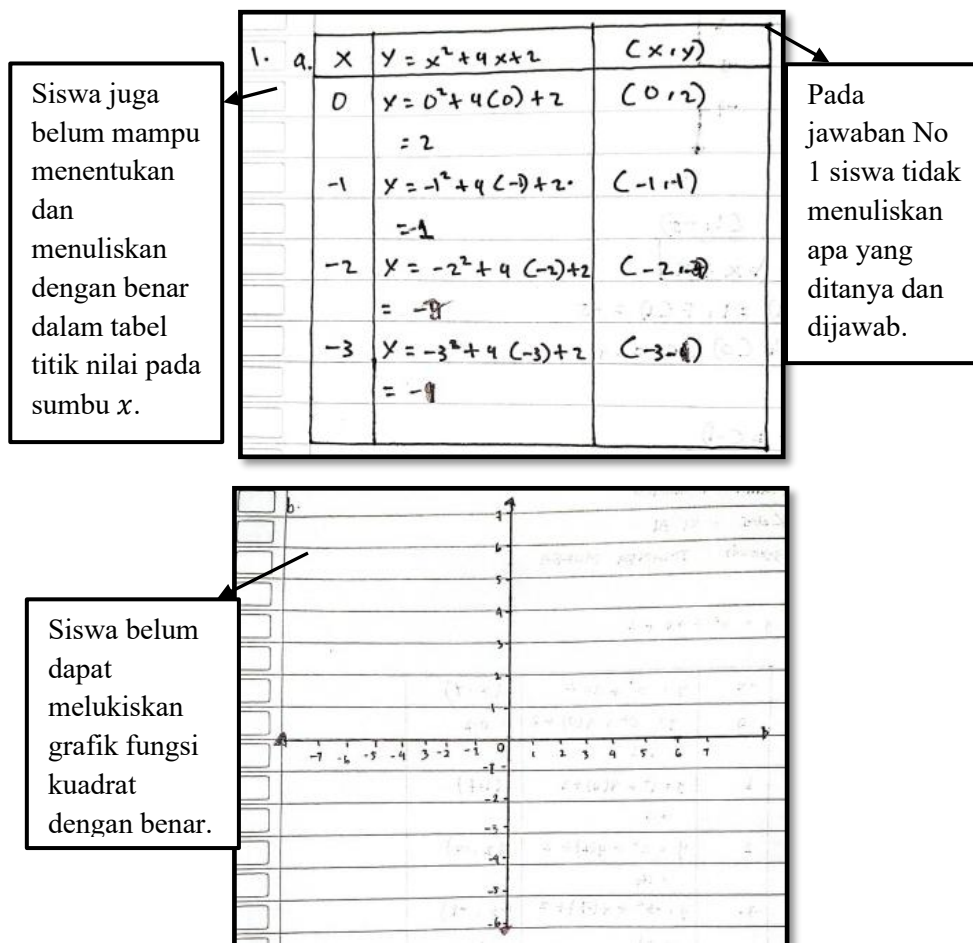 Siswa juga
belum mampu
menentukan
dan
menuliskan
dengan benar
dalam tabel
titik nilai pada
sumbu x.
1. a. x y = x² + 4x + 2 (x, y)
0 y = 0² + 4(0) + 2 (0, 2)
= 2
-1 y = -1² + 4 (-1) + 2. (-1, -1)
= -1
-2 y = -2² + 4 (-2) + 2 (-2,
=
-3 y = -3² + 4 (-3) + 2 (-3
=
Pada
jawaban No
1 siswa tidak
menuliskan
apa yang
ditanya dan
dijawab.
Siswa belum
dapat
melukiskan
grafik fungsi
kuadrat
dengan benar.
b.
7
6
5
4
3
2
1
-7 -6 -5 -4 3 -2 -1 0 1 2 3 4 5. 6 7
-1
-2
-3
-4
-5
-6